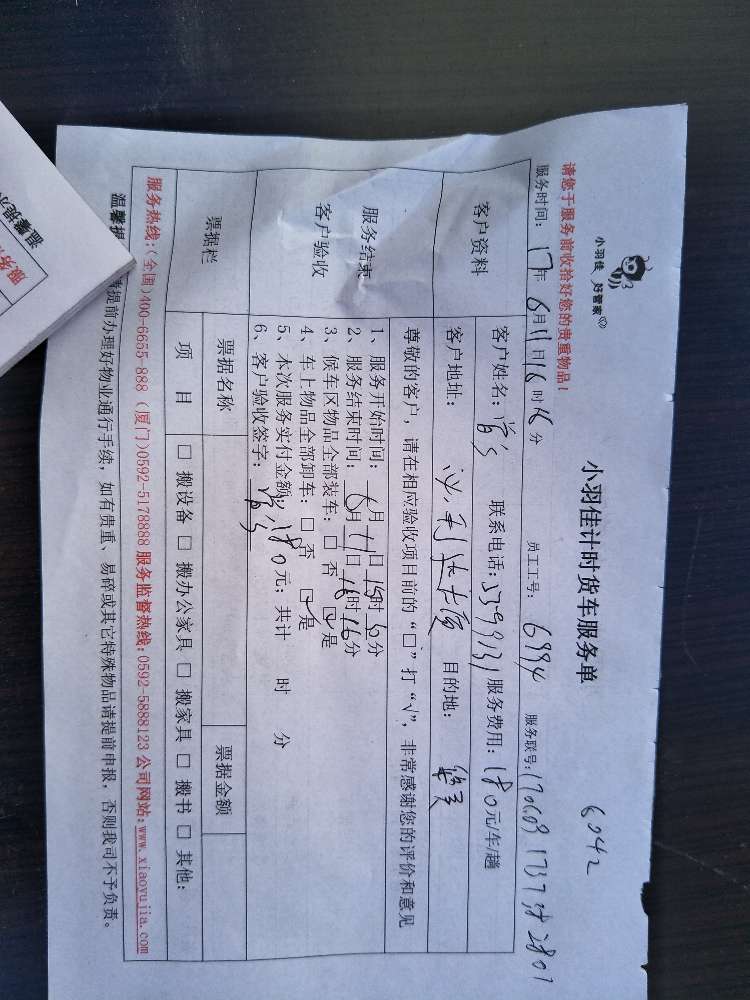 小羽佳 好管家
小羽佳计时货车服务单
6042
请您于服务前收拾好您的贵重物品！
服务时间：17年6月11日16时16分 员工工号：6994 服务联号：
客户资料
客户姓名： 联系电话：5399131 服务费用：180元/车/趟
客户地址： 目的地：
服务结束
客户验收
尊敬的客户，请在相应验收项目前的“□”打“√”，非常感谢您的评价和意见
1、服务开始时间：6月11日15时 分
2、服务结束时间：6月11日16时16分
3、候车区物品全部装车：□ 否 ☑ 是
4、车上物品全部卸车：□ 否 ☑ 是
5、本次服务实付金额：180元；共计 时 分
6、客户验收签字：
票据栏
票据名称 票据金额
项 目 □ 搬设备 □ 搬办公家具 □ 搬家具 □ 搬书 □ 其他：
服务热线：(全国)400-6655-888 (厦门)0592-5178888 服务监督热线：0592-5888123 公司网站：www.xiaoyujia.com
温馨提 请提前办理好物业通行手续，如有贵重、易碎或其它特殊物品请提前申报，否则我司不予负责。
温馨提示